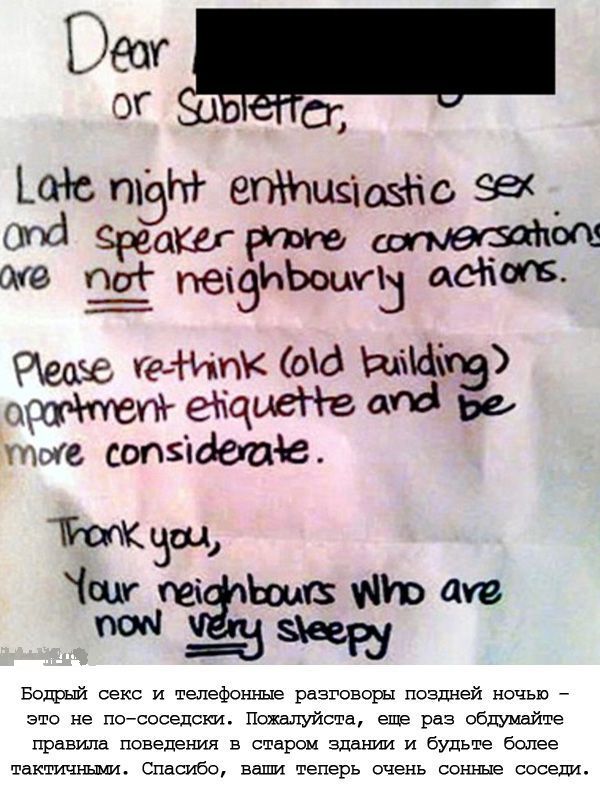 Dear
or Subletter,
Late night enthusiastic sex
and speaker phone conversations
are not neighbourly actions.
Please re-think (old building)
apartment etiquette and be
more considerate.
Thank you,
Your neighbours who are
now very sleepy
Бодрый секс и телефонные разговоры поздней ночью -
это не по-соседски. Пожалуйста, еще раз обдумайте
правила поведения в старом здании и будьте более
тактичными. Спасибо, ваши теперь очень сонные соседи.